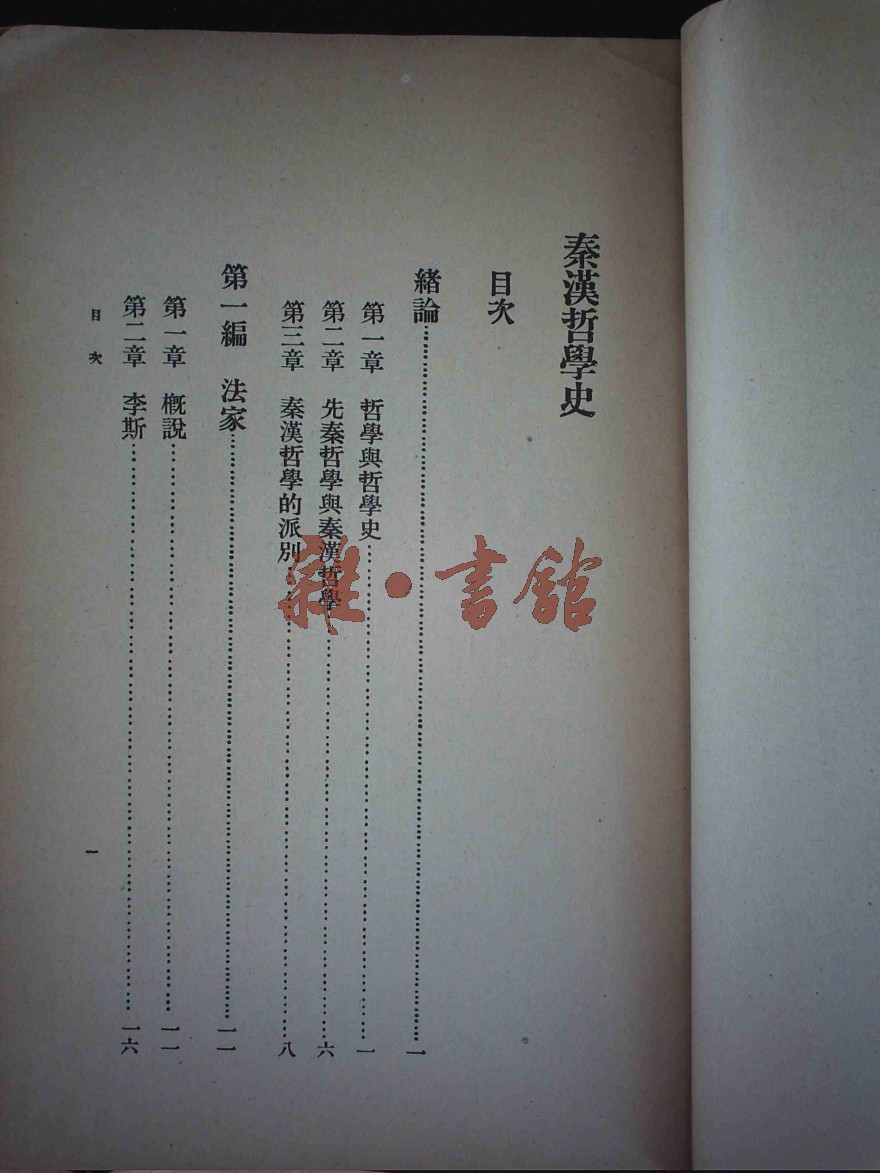 秦漢哲學史
目次
緒論……一
第一章 哲學與哲學史……一
第二章 先秦哲學與秦漢哲學……六
第三章 秦漢哲學的派別……八
第一編 法家……一一
第一章 概說……一一
第二章 李斯……一六
目次
一
雜·書館